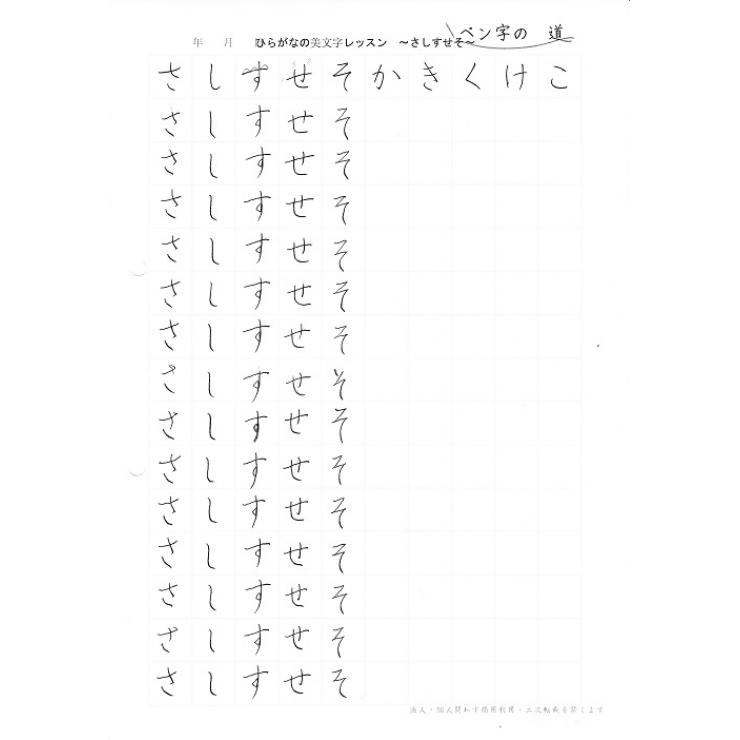 年 月 ひらがなの美文字レッスン ～さしすせそ～ ペン字の 道
さ し す せ そ か き く け こ
さ し す せ そ
さ し す せ そ
さ し す せ そ
さ し す せ そ
さ し す せ そ
さ し す せ そ
さ し す せ そ
さ し す せ そ
さ し す せ そ
さ し す せ そ
さ し す せ そ
さ し す せ そ
さ し す せ そ
さ し す せ そ
法人・個人問わず商用利用・二次転載を禁じます